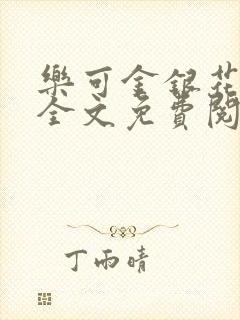 樂可金銀花
全文免費閱
丁雨晴